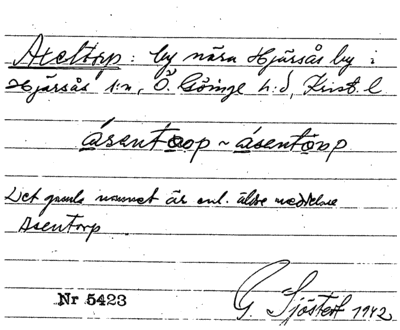 Axeltorp: by nära Hjärsås by i
Hjärsås s:n, Ö. Göinge h:d, Krist. l.
ásentoop ~ ásentorp
Det gamla namnet är enl. äldre meddelare
Asentorp
Nr 5423
G. Sjöstedt 1942